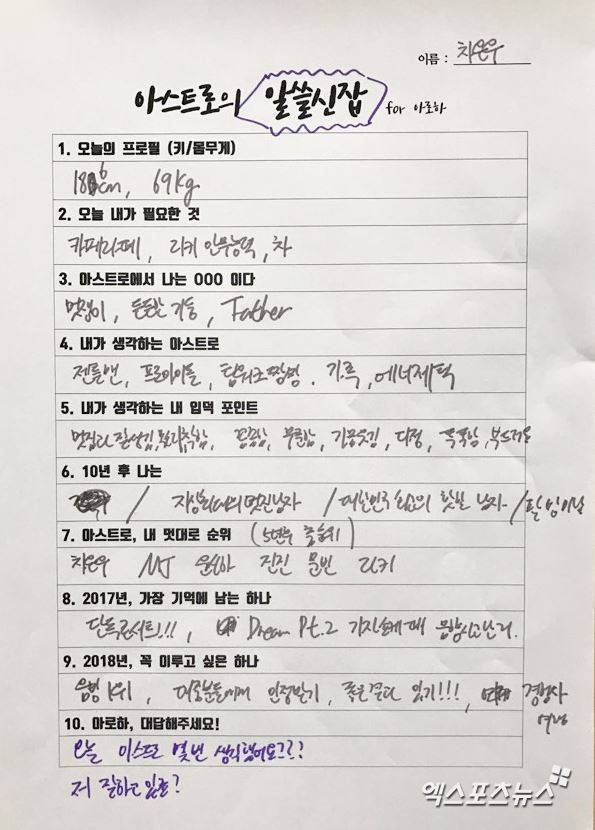 이름 : 차은우
아스트로의 알쓸신잡 for 아로하
1. 오늘의 프로필 (키/몸무게)
186cm, 69kg
2. 오늘 내가 필요한 것
카페라떼, 라키 안무능력, 차
3. 아스트로에서 나는 OOO 이다
멋쟁이, 든든한 기둥, Father
4. 내가 생각하는 아스트로
젠틀맨, 프로아이돌, 팀워크짱, 가족, 에너제틱
5. 내가 생각하는 내 입덕 포인트
멋있다, 잘생김, 착함, 꼼꼼함, 다정, 똑똑함, 부드러움
6. 10년 후 나는
/ 지상최대의 멋진남자 / 대한민국 최고의 핫한 남자 /
7. 아스트로, 내 멋대로 순위 (5년후 출세위)
차은우 MJ 윤산하 진진 문빈 라키
8. 2017년, 가장 기억에 남는 하나
단독콘서트!!!, Dream Pt.2 기자쇼케때 음향사고난거.
9. 2018년, 꼭 이루고 싶은 하나
음방 1위, 대중분들에게 인정받기, 좋은 있기!!!, 경호사
10. 아로하, 대답해주세요!
오늘 아스트로 몇번 생각했어요???
저 잘하고 있죠?
엑스포츠뉴스